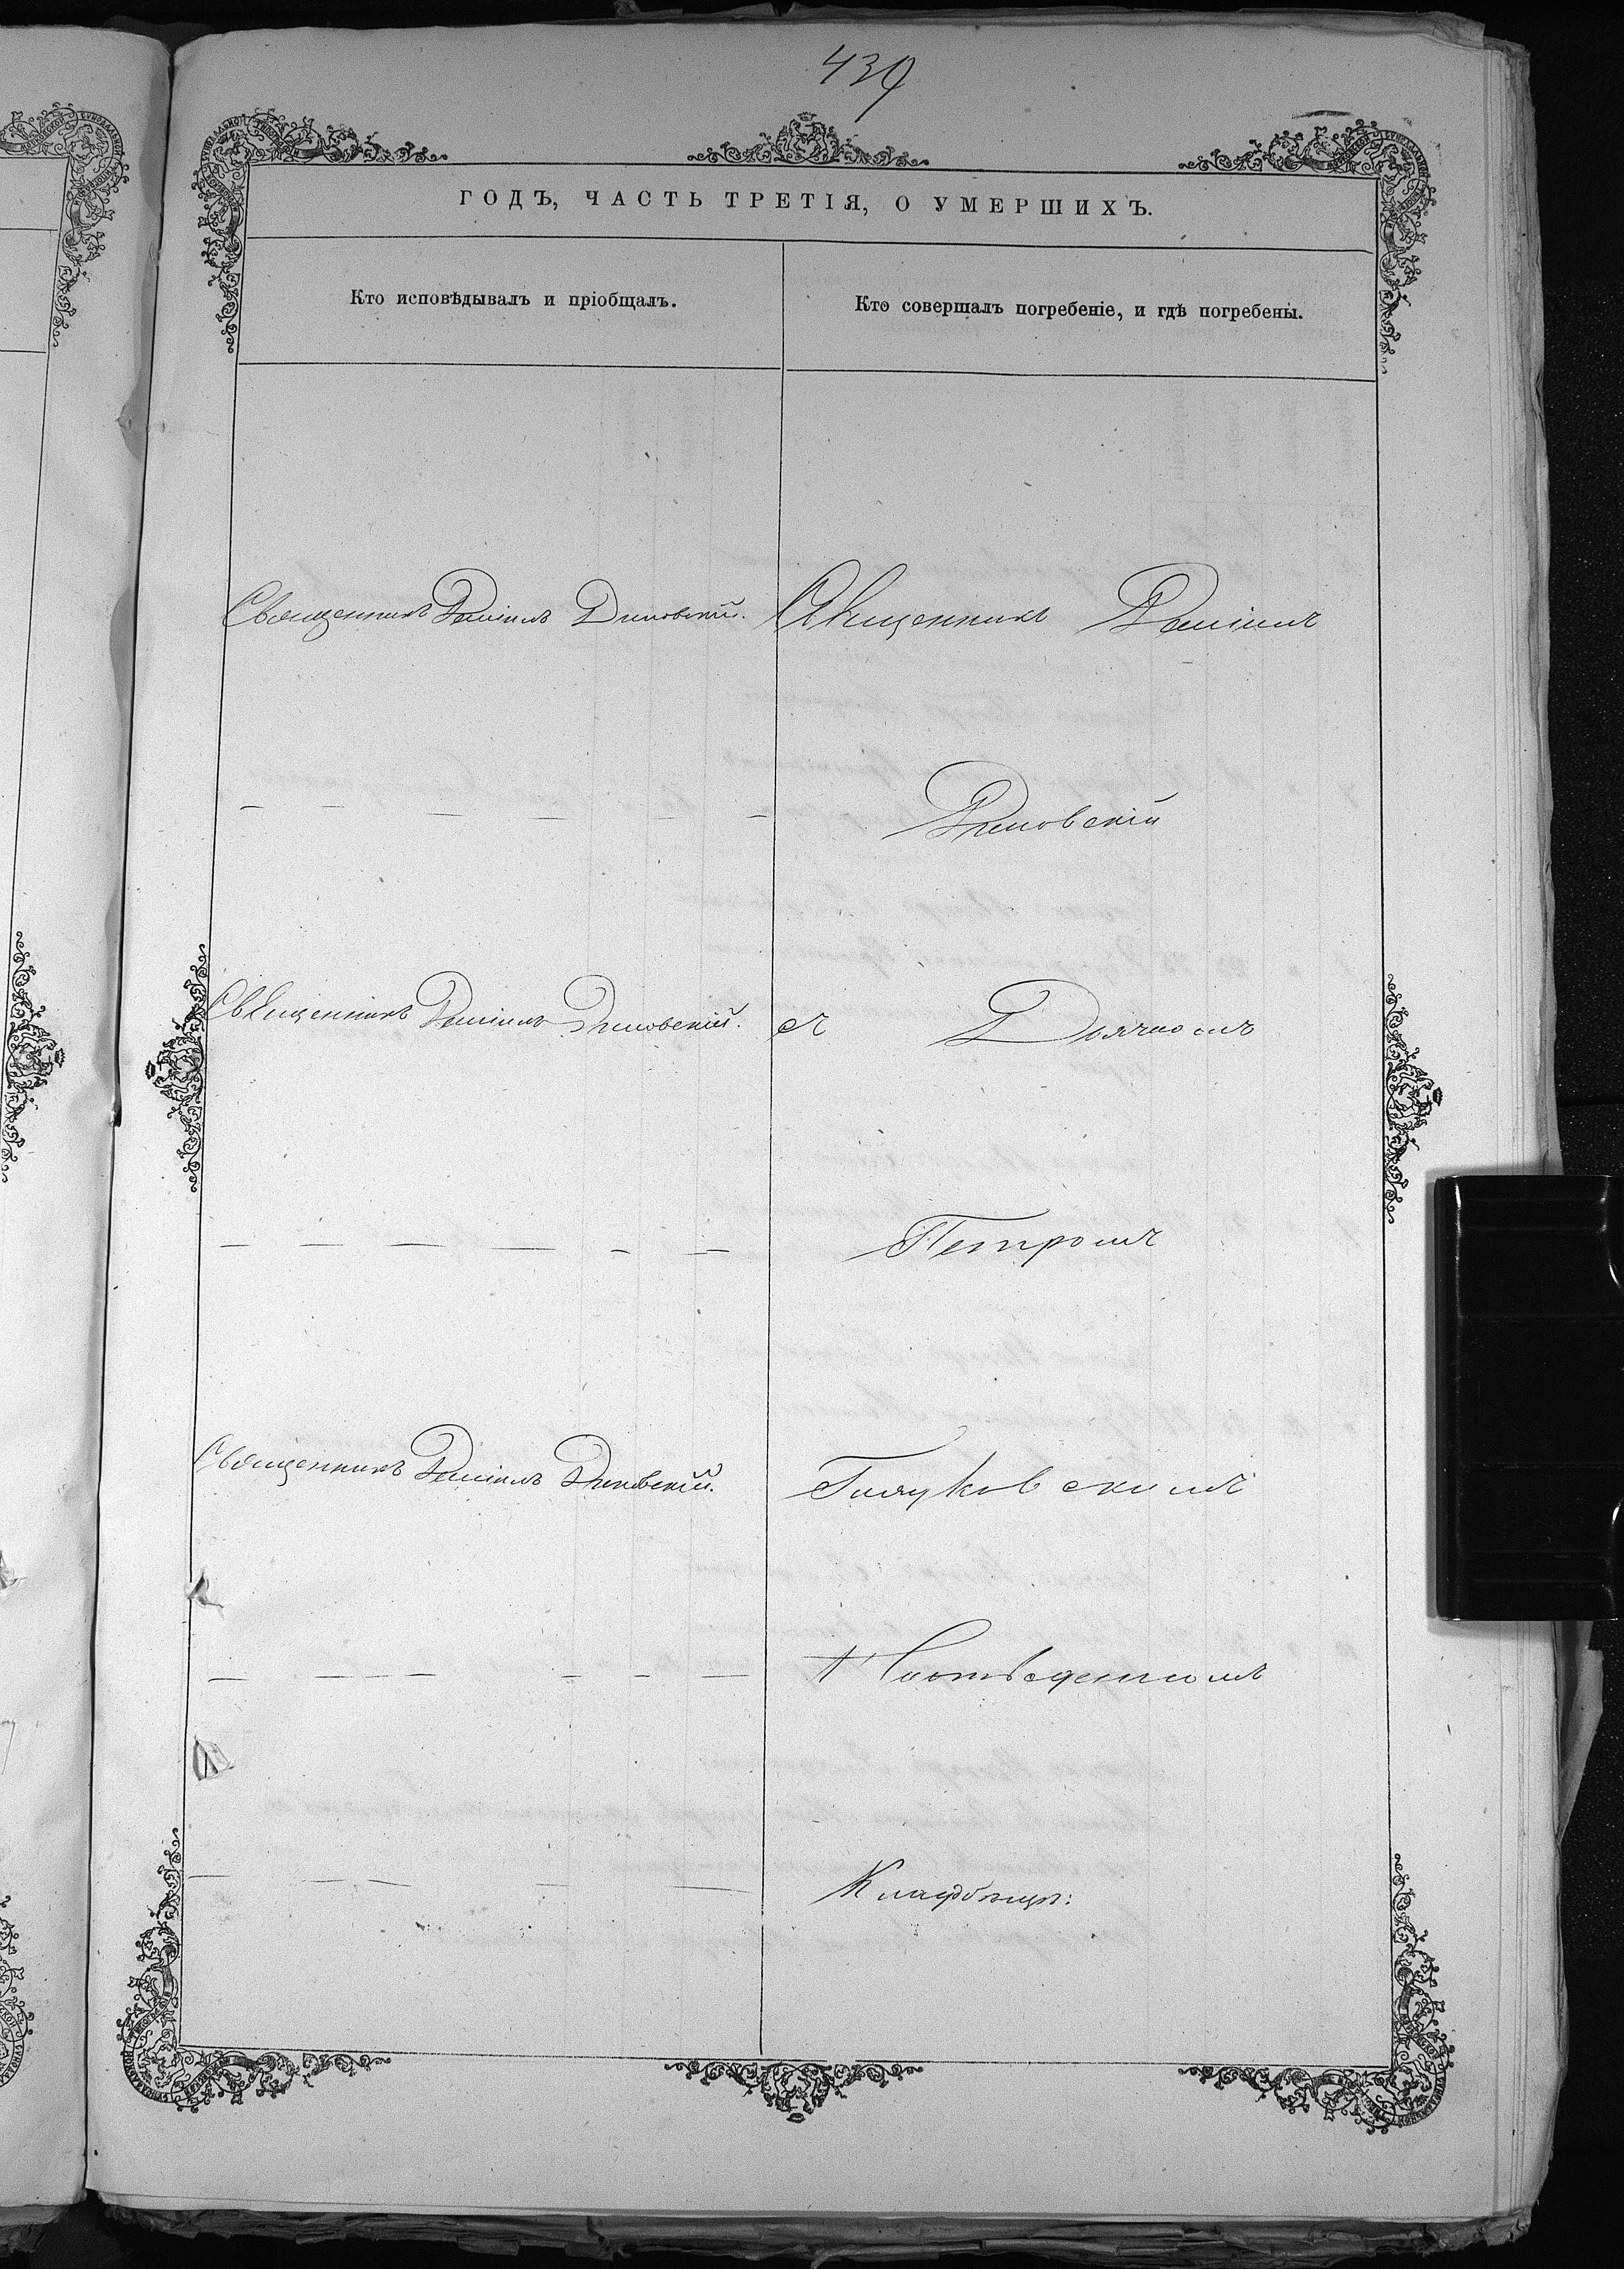 439
ГОДЪ, ЧАСТЬ ТРЕТІЯ, О УМЕРШИХЪ.
Кто исповѣдывалъ и пріобщалъ.
Кто совершалъ погребеніе, и гдѣ погребены.
Священникъ Даніилъ Диковскій.
Священникъ Даніилъ
— — — — —
Диковскій
Священникъ Даніилъ Диковскій.
съ Дьячкомъ
— — — — — —
Петромъ
Священникъ Даніилъ Диковскій.
— — — — — —
— — — —
Кладбищѣ: